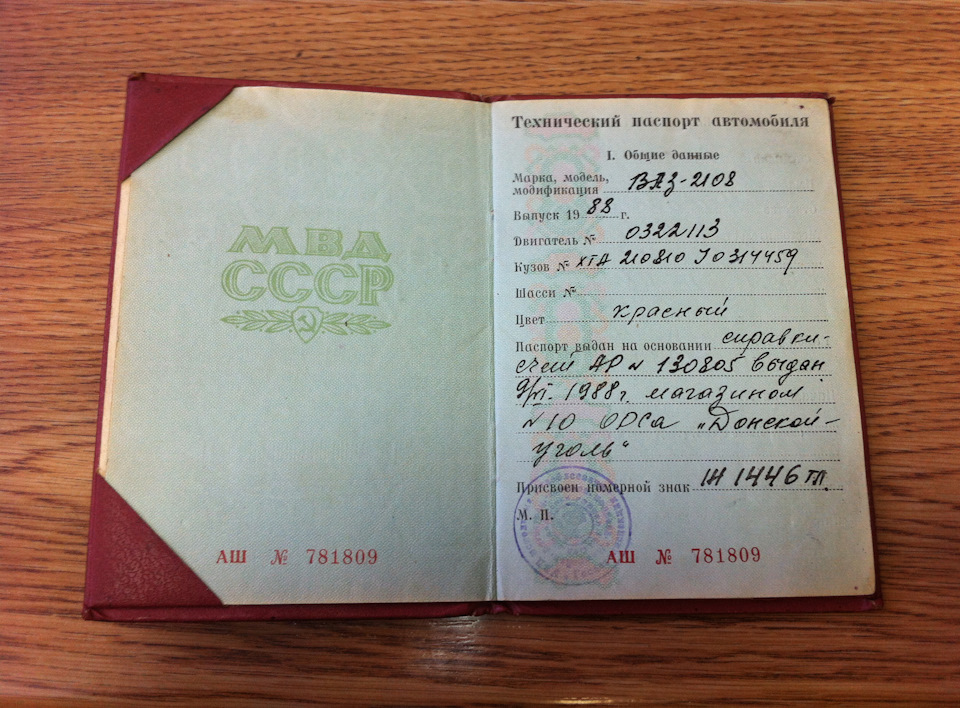 МВД
СССР
АШ № 781809
Технический паспорт автомобиля
I. Общие данные
Марка, модель,
модификация ВАЗ-2108
Выпуск 1988 г.
Двигатель № 0322113
Кузов № ХТА 210810 J0314459
Шасси №
Цвет красный
Паспорт выдан на основании справки-
счет АР № 130805 выдан
9/VI. 1988г. магазином
№ 10 ОРСа „Донской-
уголь"
Присвоен номерной знак 1446
М. П.
АШ № 781809